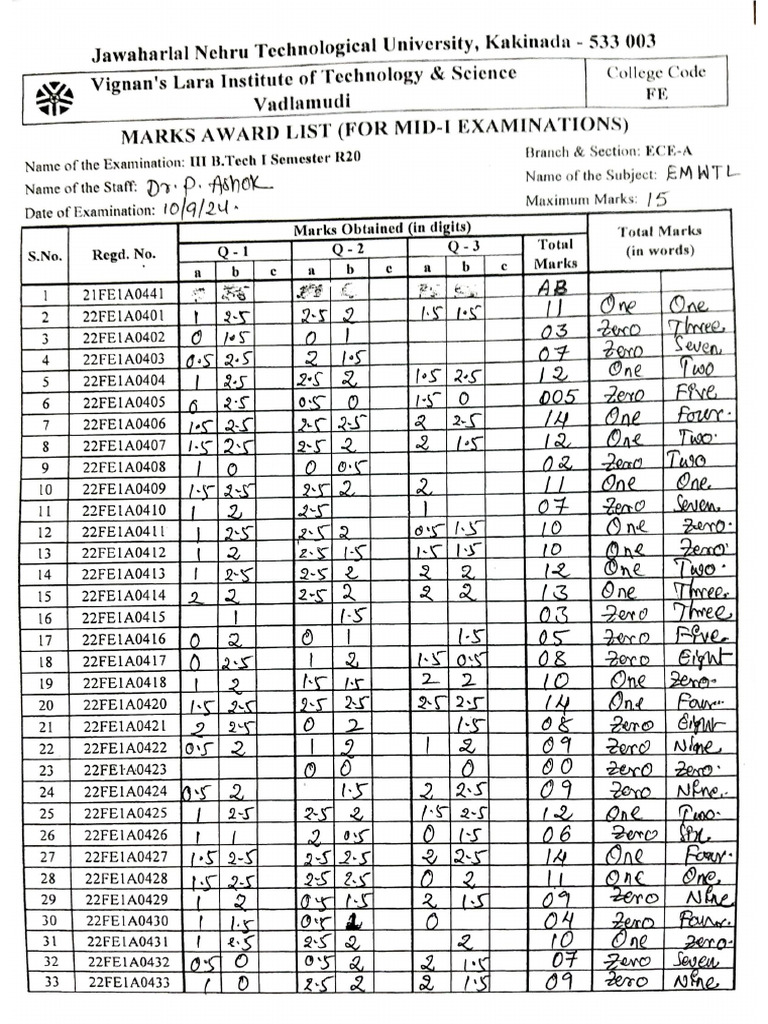 Jawaharlal Nehru Technological University, Kakinada - 533 003
Vignan's Lara Institute of Technology & Science
Vadlamudi
College Code
FE
MARKS AWARD LIST (FOR MID-I EXAMINATIONS)
Name of the Examination: III B.Tech I Semester R20
Branch & Section: ECE-A
Name of the Staff: Dr. P. Ashok
Name of the Subject: EMWTL
Date of Examination: 10/9/24.
Maximum Marks: 15
S.No. Regd. No. Marks Obtained (in digits) Total Marks (in words)
Q - 1 Q - 2 Q - 3 Total Marks
a b c a b c a b c
1 21FE1A0441 AB
2 22FE1A0401 1 2.5 2.5 2 1.5 1.5 11 One One
3 22FE1A0402 0 1.5 0 1 03 Zero Three
4 22FE1A0403 0.5 2.5 2 1.5 07 Zero Seven
5 22FE1A0404 1 2.5 2.5 2 1.5 2.5 12 One Two
6 22FE1A0405 0 2.5 0.5 0 1.5 0 005 Zero Five
7 22FE1A0406 1.5 2.5 2.5 2.5 2 2.5 14 One Four.
8 22FE1A0407 1.5 2.5 2.5 2 2 1.5 12 One Two.
9 22FE1A0408 1 0 0 0.5 02 Zero Two
10 22FE1A0409 1.5 2.5 2.5 2 2 11 One One.
11 22FE1A0410 1 2 2.5 1 07 Zero Seven
12 22FE1A0411 1 2.5 2.5 2 0.5 1.5 10 One Zero.
13 22FE1A0412 1 2 2.5 1.5 1.5 1.5 10 One Zero.
14 22FE1A0413 1 2.5 2.5 2 2 2 12 One Two.
15 22FE1A0414 2 2 2.5 2 2 2 13 One Three.
16 22FE1A0415 1 1.5 03 Zero Three
17 22FE1A0416 0 2 0 1 1.5 05 Zero Five.
18 22FE1A0417 0 2.5 1 2 1.5 0.5 08 Zero Eight
19 22FE1A0418 1 2 1.5 1.5 2 2 10 One Zero.
20 22FE1A0420 1.5 2.5 2.5 2.5 2.5 2.5 14 One Four.
21 22FE1A0421 2 2.5 0 2 1.5 08 Zero Eight
22 22FE1A0422 0.5 2 1 2 1 2 09 Zero Nine
23 22FE1A0423 0 0 0 00 Zero Zero.
24 22FE1A0424 0.5 2 1.5 2 2.5 09 Zero Nine.
25 22FE1A0425 1 2.5 2.5 2 1.5 2.5 12 One Two.
26 22FE1A0426 1 1 2 0.5 0 1.5 06 Zero Six
27 22FE1A0427 1.5 2.5 2.5 2.5 2 2.5 14 One Four.
28 22FE1A0428 1.5 2.5 2.5 2.5 0 2 11 One One.
29 22FE1A0429 1 2 0.5 1.5 2 1.5 09 Zero Nine
30 22FE1A0430 1 1.5 0.5 1 0 04 Zero Four.
31 22FE1A0431 1 2.5 2.5 2 2 10 One Zero.
32 22FE1A0432 0.5 0 0.5 2 2 1.5 07 Zero Seven
33 22FE1A0433 1 0 2.5 2 2 1.5 09 Zero Nine